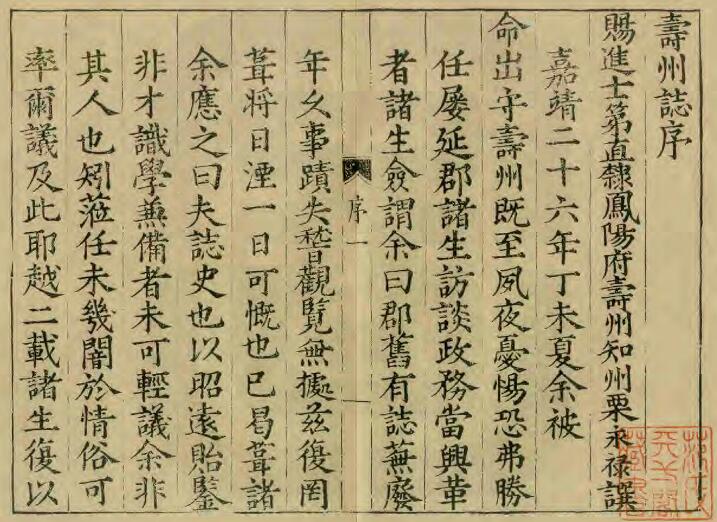 壽州誌序
賜進士第直隸鳳陽府壽州知州栗永祿譔
嘉靖二十六年丁未夏余被
命出守壽州既至夙夜憂惕恐弗勝
任屢延郡諸生訪談政務當興革
者諸生僉謂余曰郡舊有誌蕪廢
序一
年久事蹟失暓觀覽無據茲復罔
葺將日湮一日可慨也已曷葺諸
余應之曰夫誌史也以昭遠貽鑒
非才識學兼備者未可輕議余非
其人也矧蒞任未幾闇於情俗可
率爾議及此耶越二載諸生復以